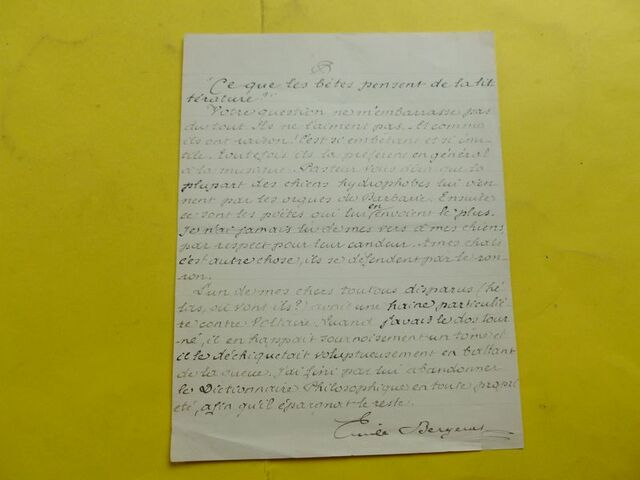 "Ce que les bêtes pensent de la lit
térature?"
Votre question ne m'embarrasse pas
du tout. Ils ne l'aiment pas. Et comme
ils ont raison! C'est si embêtant et si inu
tile. Toutefois ils la préfèrent en général
à la musique. Pasteur vous dira que la
plupart des chiens hydrophobes lui vien
nent par les orgues de Barbarie. Ensuite
ce sont les poètes qui lui en envoient le plus.
Je n'ai jamais lu de mes vers à mes chiens
par respect pour leur candeur. A mes chats
c'est autre chose, ils se défendent par le ron-
ron.
L'un de mes chers toutous disparus (hé
las, où vont ils?) avait une haine particuliè
re contre Voltaire. Quand j'avais le dos tour
né, il en happait sournoisement un tome et
il le déchiquetait voluptueusement en battant
de la queue. J'ai fini par lui abandonner
le Dictionnaire Philosophique en toute propri
été, afin qu'il épargnat le reste.
Emile Bergerat